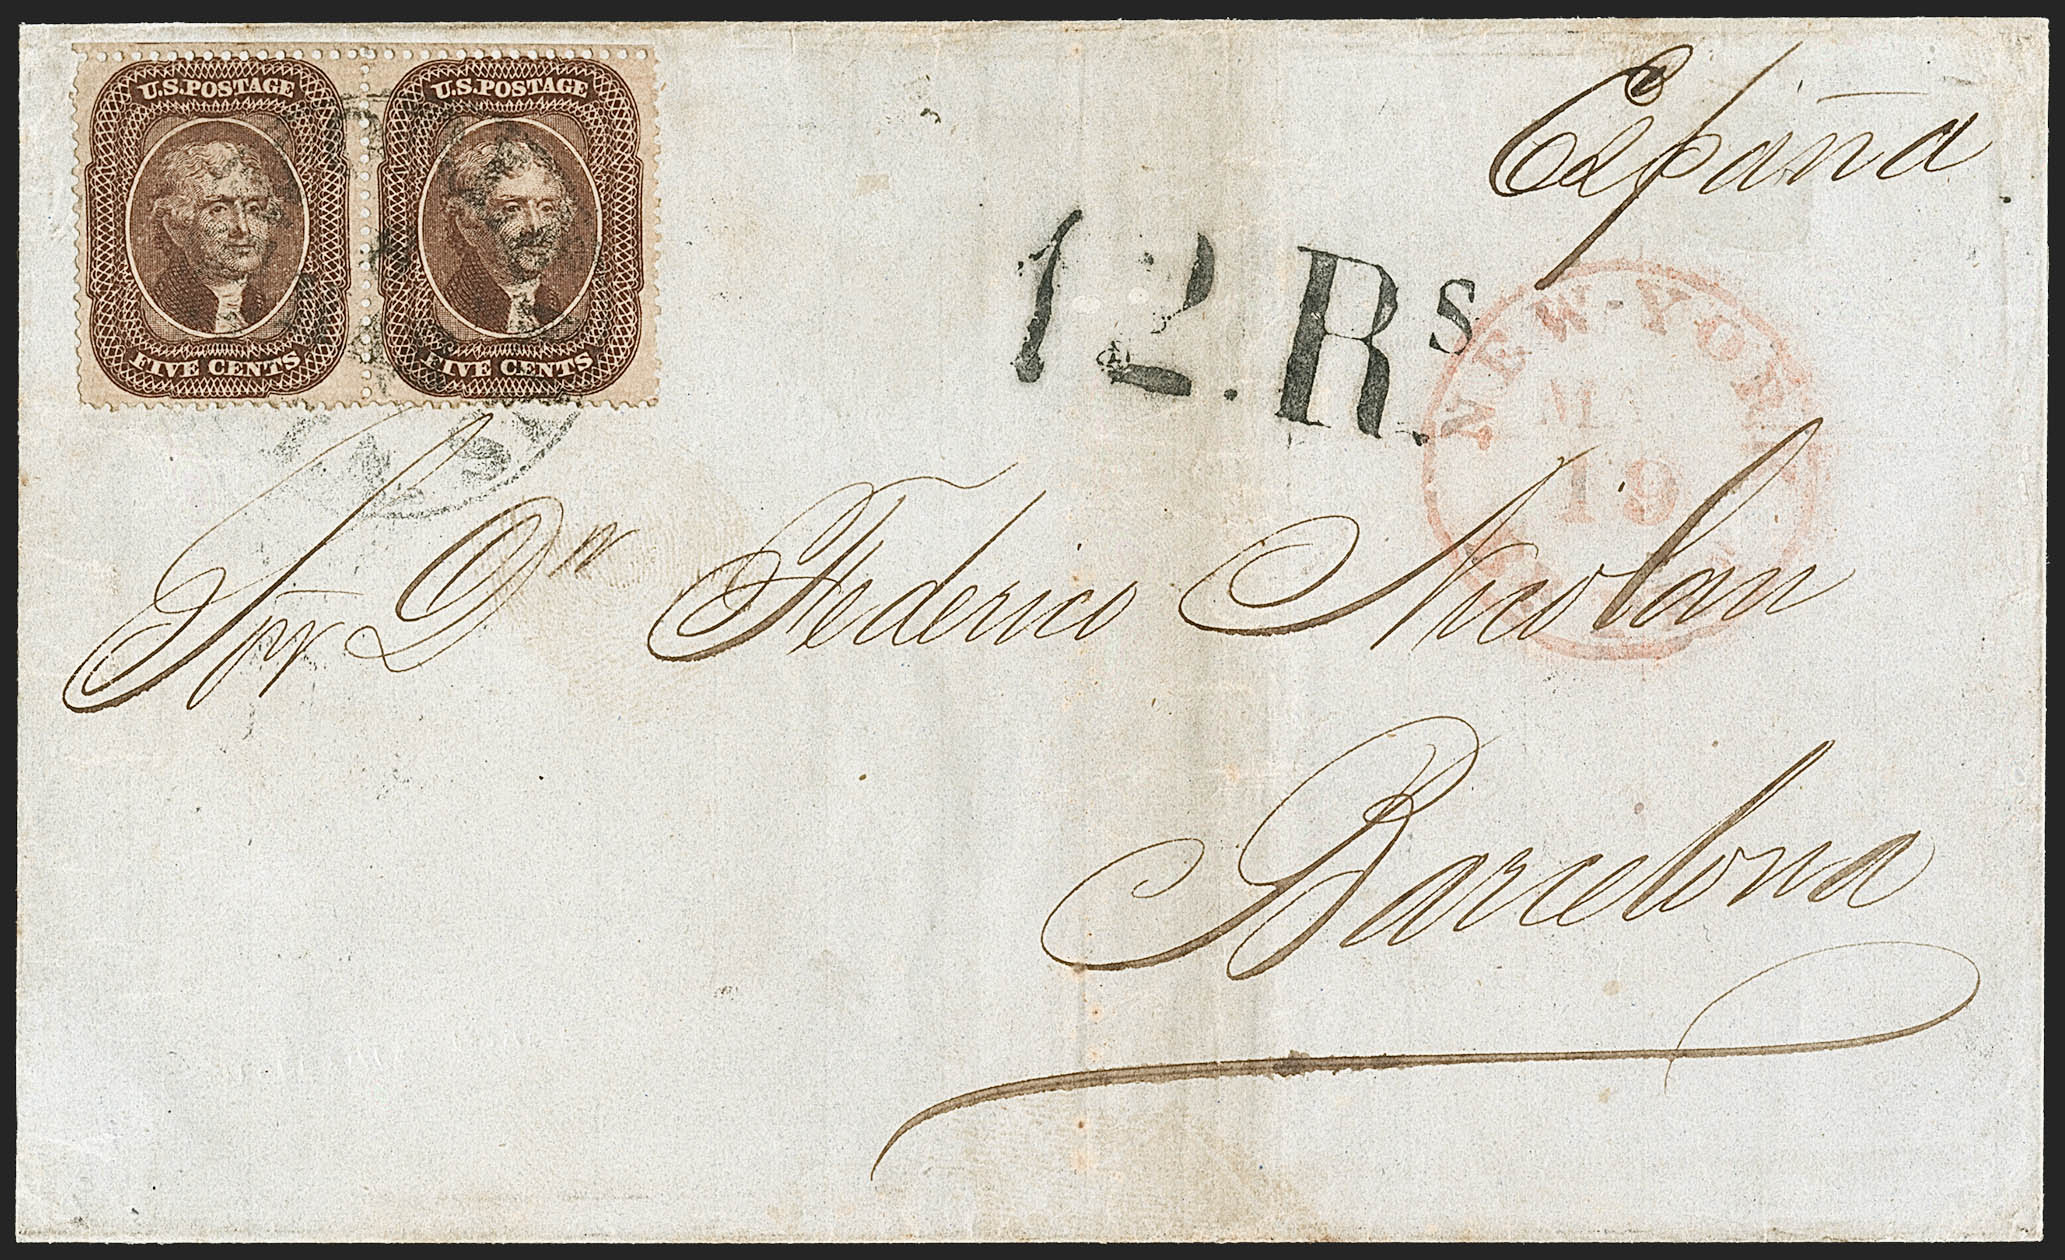 U.S. POSTAGE U.S. POSTAGE
FIVE CENTS FIVE CENTS
España
12.Rs.
NEW-YORK
19
Sor Dn Federico Nicolau
Barcelona